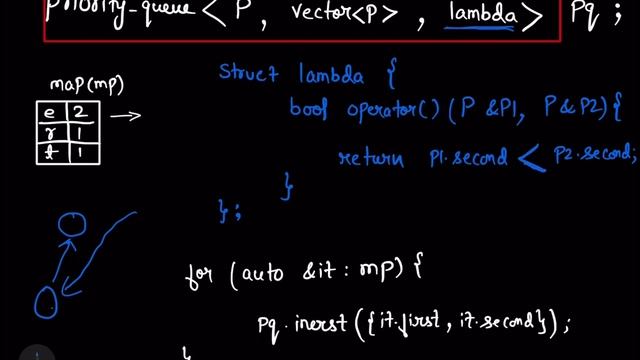 priority_queue < P, vector<P>, lambda > Pq ;
map(mp)
e 2
r 1
t 1
Struct lambda {
bool operator() (P &P1, P & P2) {
return P1.second < P2.second;
}
};
for (auto &it : mp) {
Pq.inerst ({it.first, it.second});
}